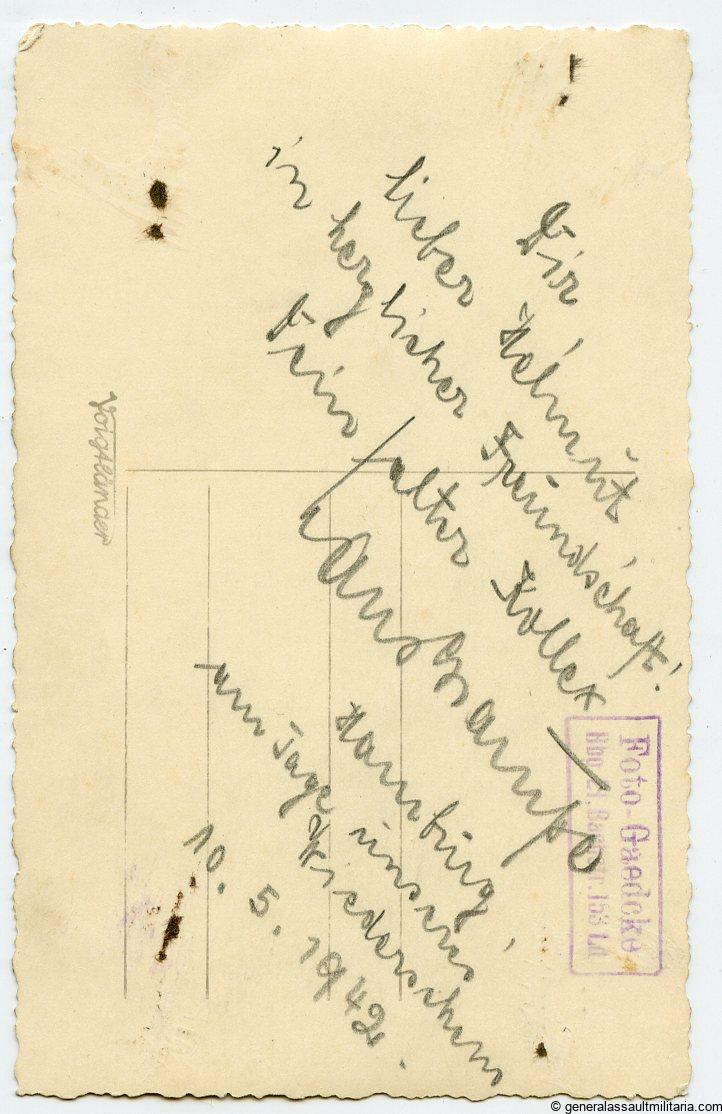 Dir
lieber Helmut
in herzlicher Freundschaft!
Dein alter
Hamburg,
am Tage unseres
Wiedersehens
10. 5. 1942.
Voigtländer
Foto-Gaedcke
153 Ld
© generalassaultmilitaria.com